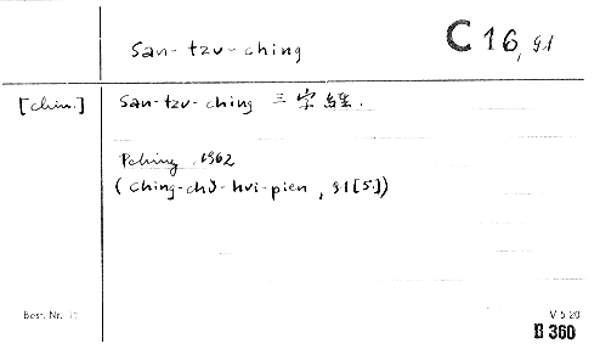 San-tzu-ching C 16, 91
[chin.] San-tzu-ching 三字經.
Peking, 1962
(Ching-chü-hui-pien, 91[5.])
Best. Nr.
V 5 20
B 360